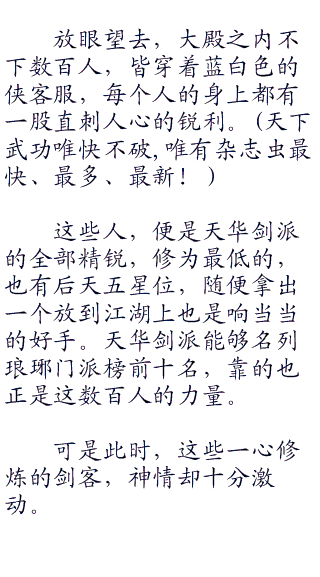 放眼望去，大殿之内不
下数百人，皆穿着蓝白色的
侠客服，每个人的身上都有
一股直刺人心的锐利。(天下
武功唯快不破,唯有杂志虫最
快、最多、最新！ )
这些人，便是天华剑派
的全部精锐，修为最低的，
也有后天五星位，随便拿出
一个放到江湖上也是响当当
的好手。天华剑派能够名列
琅琊门派榜前十名，靠的也
正是这数百人的力量。
可是此时，这些一心修
炼的剑客，神情却十分激
动。